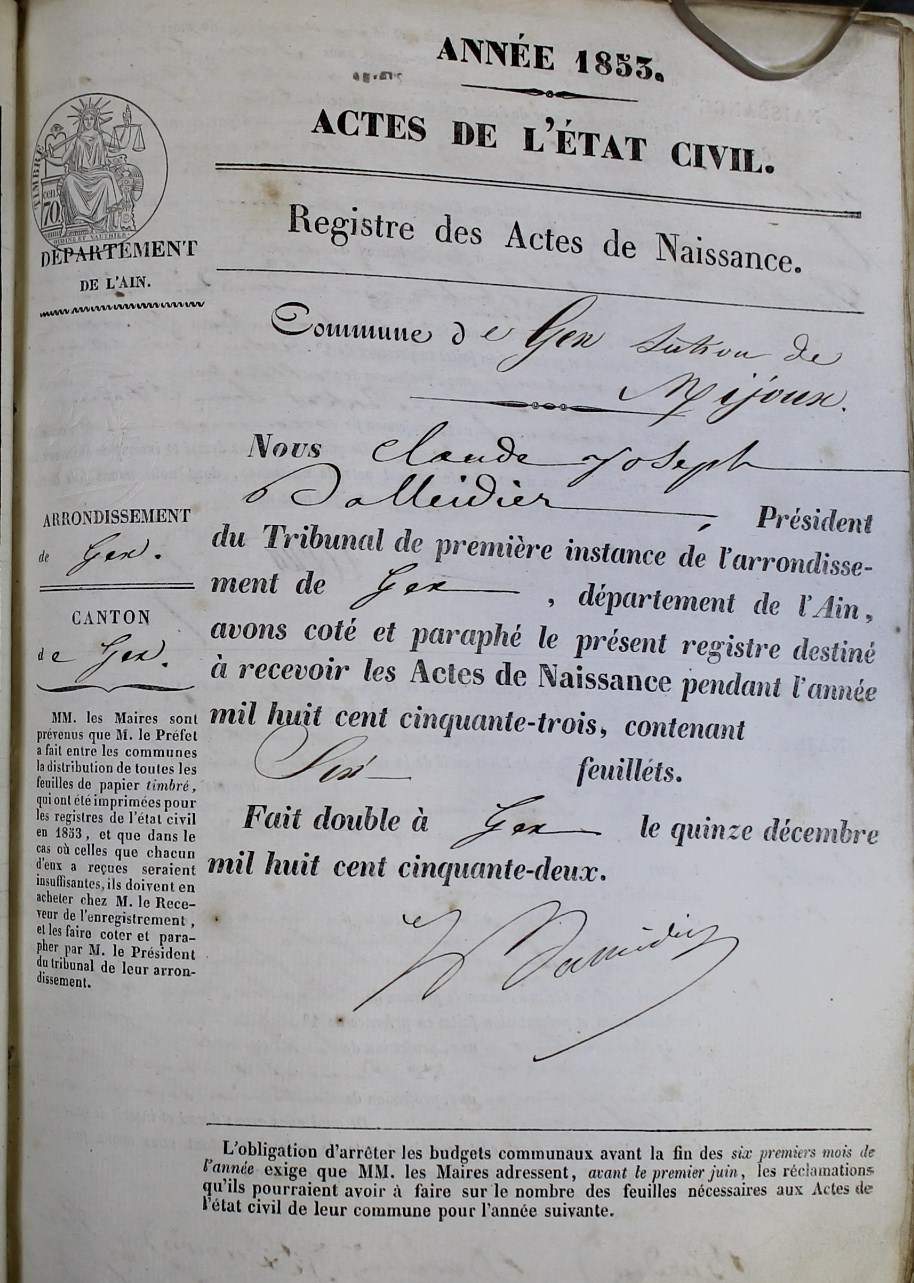 ANNÉE 1853.
ACTES DE L'ÉTAT CIVIL.
Registre des Actes de Naissance.
TIMBRE
cen
70
DÉPARTEMENT
DE L'AIN.
Commune de Gex section de
Mijoux.
Nous Claude Joseph
Président
du Tribunal de première instance de l'arrondisse-
ment de Gex, département de l'Ain,
avons coté et paraphé le présent registre destiné
à recevoir les Actes de Naissance pendant l'année
mil huit cent cinquante-trois, contenant
Six feuilléts.
Fait double à Gex le quinze décembre
mil huit cent cinquante-deux.
ARRONDISSEMENT
de Gex.
CANTON
de Gex.
MM. les Maires sont
prévenus que M. le Préfet
a fait entre les communes
la distribution de toutes les
feuilles de papier timbré,
qui ont été imprimées pour
les registres de l'état civil
en 1853, et que dans le
cas où celles que chacun
d'eux a reçues seraient
insuffisantes, ils doivent en
acheter chez M. le Rece-
veur de l'enregistrement,
et les faire coter et para-
pher par M. le Président
du tribunal de leur arron-
dissement.
L'obligation d'arrêter les budgets communaux avant la fin des six premiers mois de
l'année exige que MM. les Maires adressent, avant le premier juin, les réclamations
qu'ils pourraient avoir à faire sur le nombre des feuilles nécessaires aux Actes de
l'état civil de leur commune pour l'année suivante.